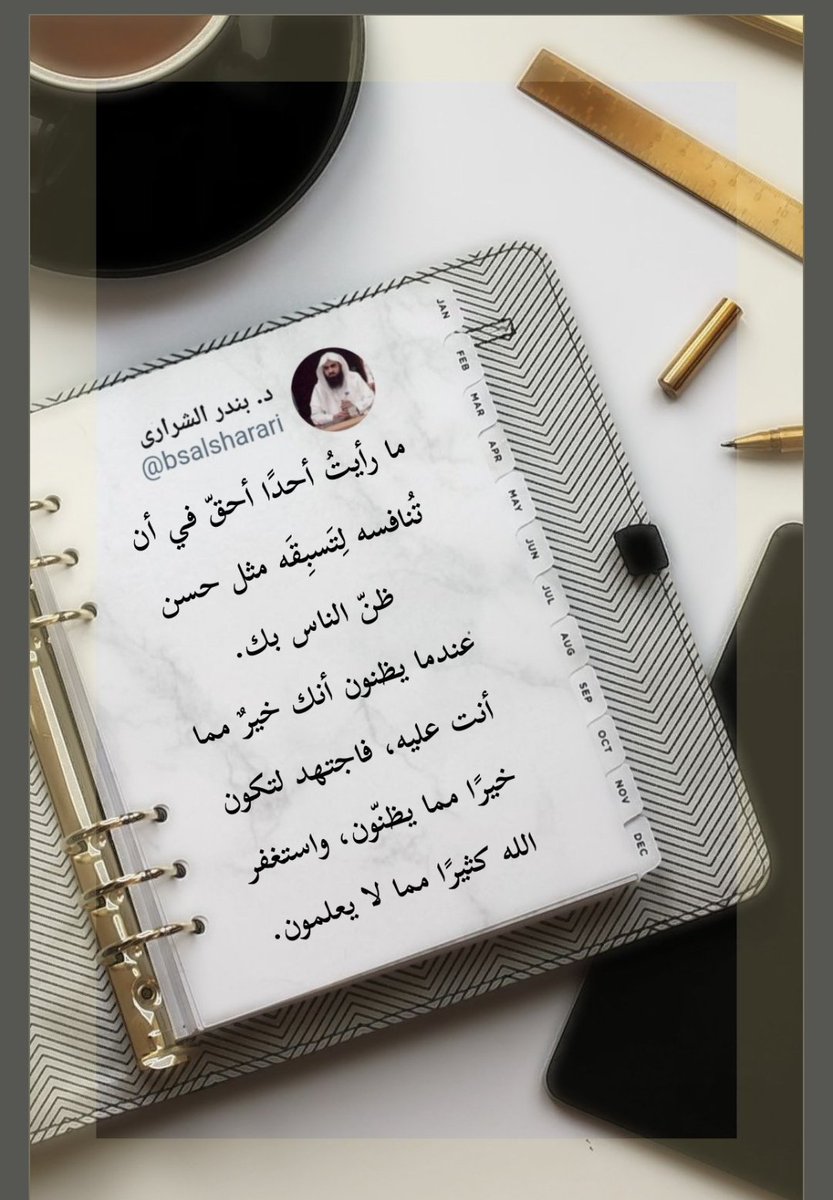 د. بندر الشراري
@bsalsharari
ما رأيتُ أحدًا أحقّ في أن
تُنافسه لِتَسبِقَه مثل حسن
ظنّ الناس بك.
عندما يظنون أنك خيرٌ مما
أنت عليه، فاجتهد لتكون
خيرًا مما يظنّون، واستغفر
الله كثيرًا مما لا يعلمون.
JAN
FEB
MAR
APR
MAY
JUN
JUL
AUG
SEP
OCT
NOV
DEC